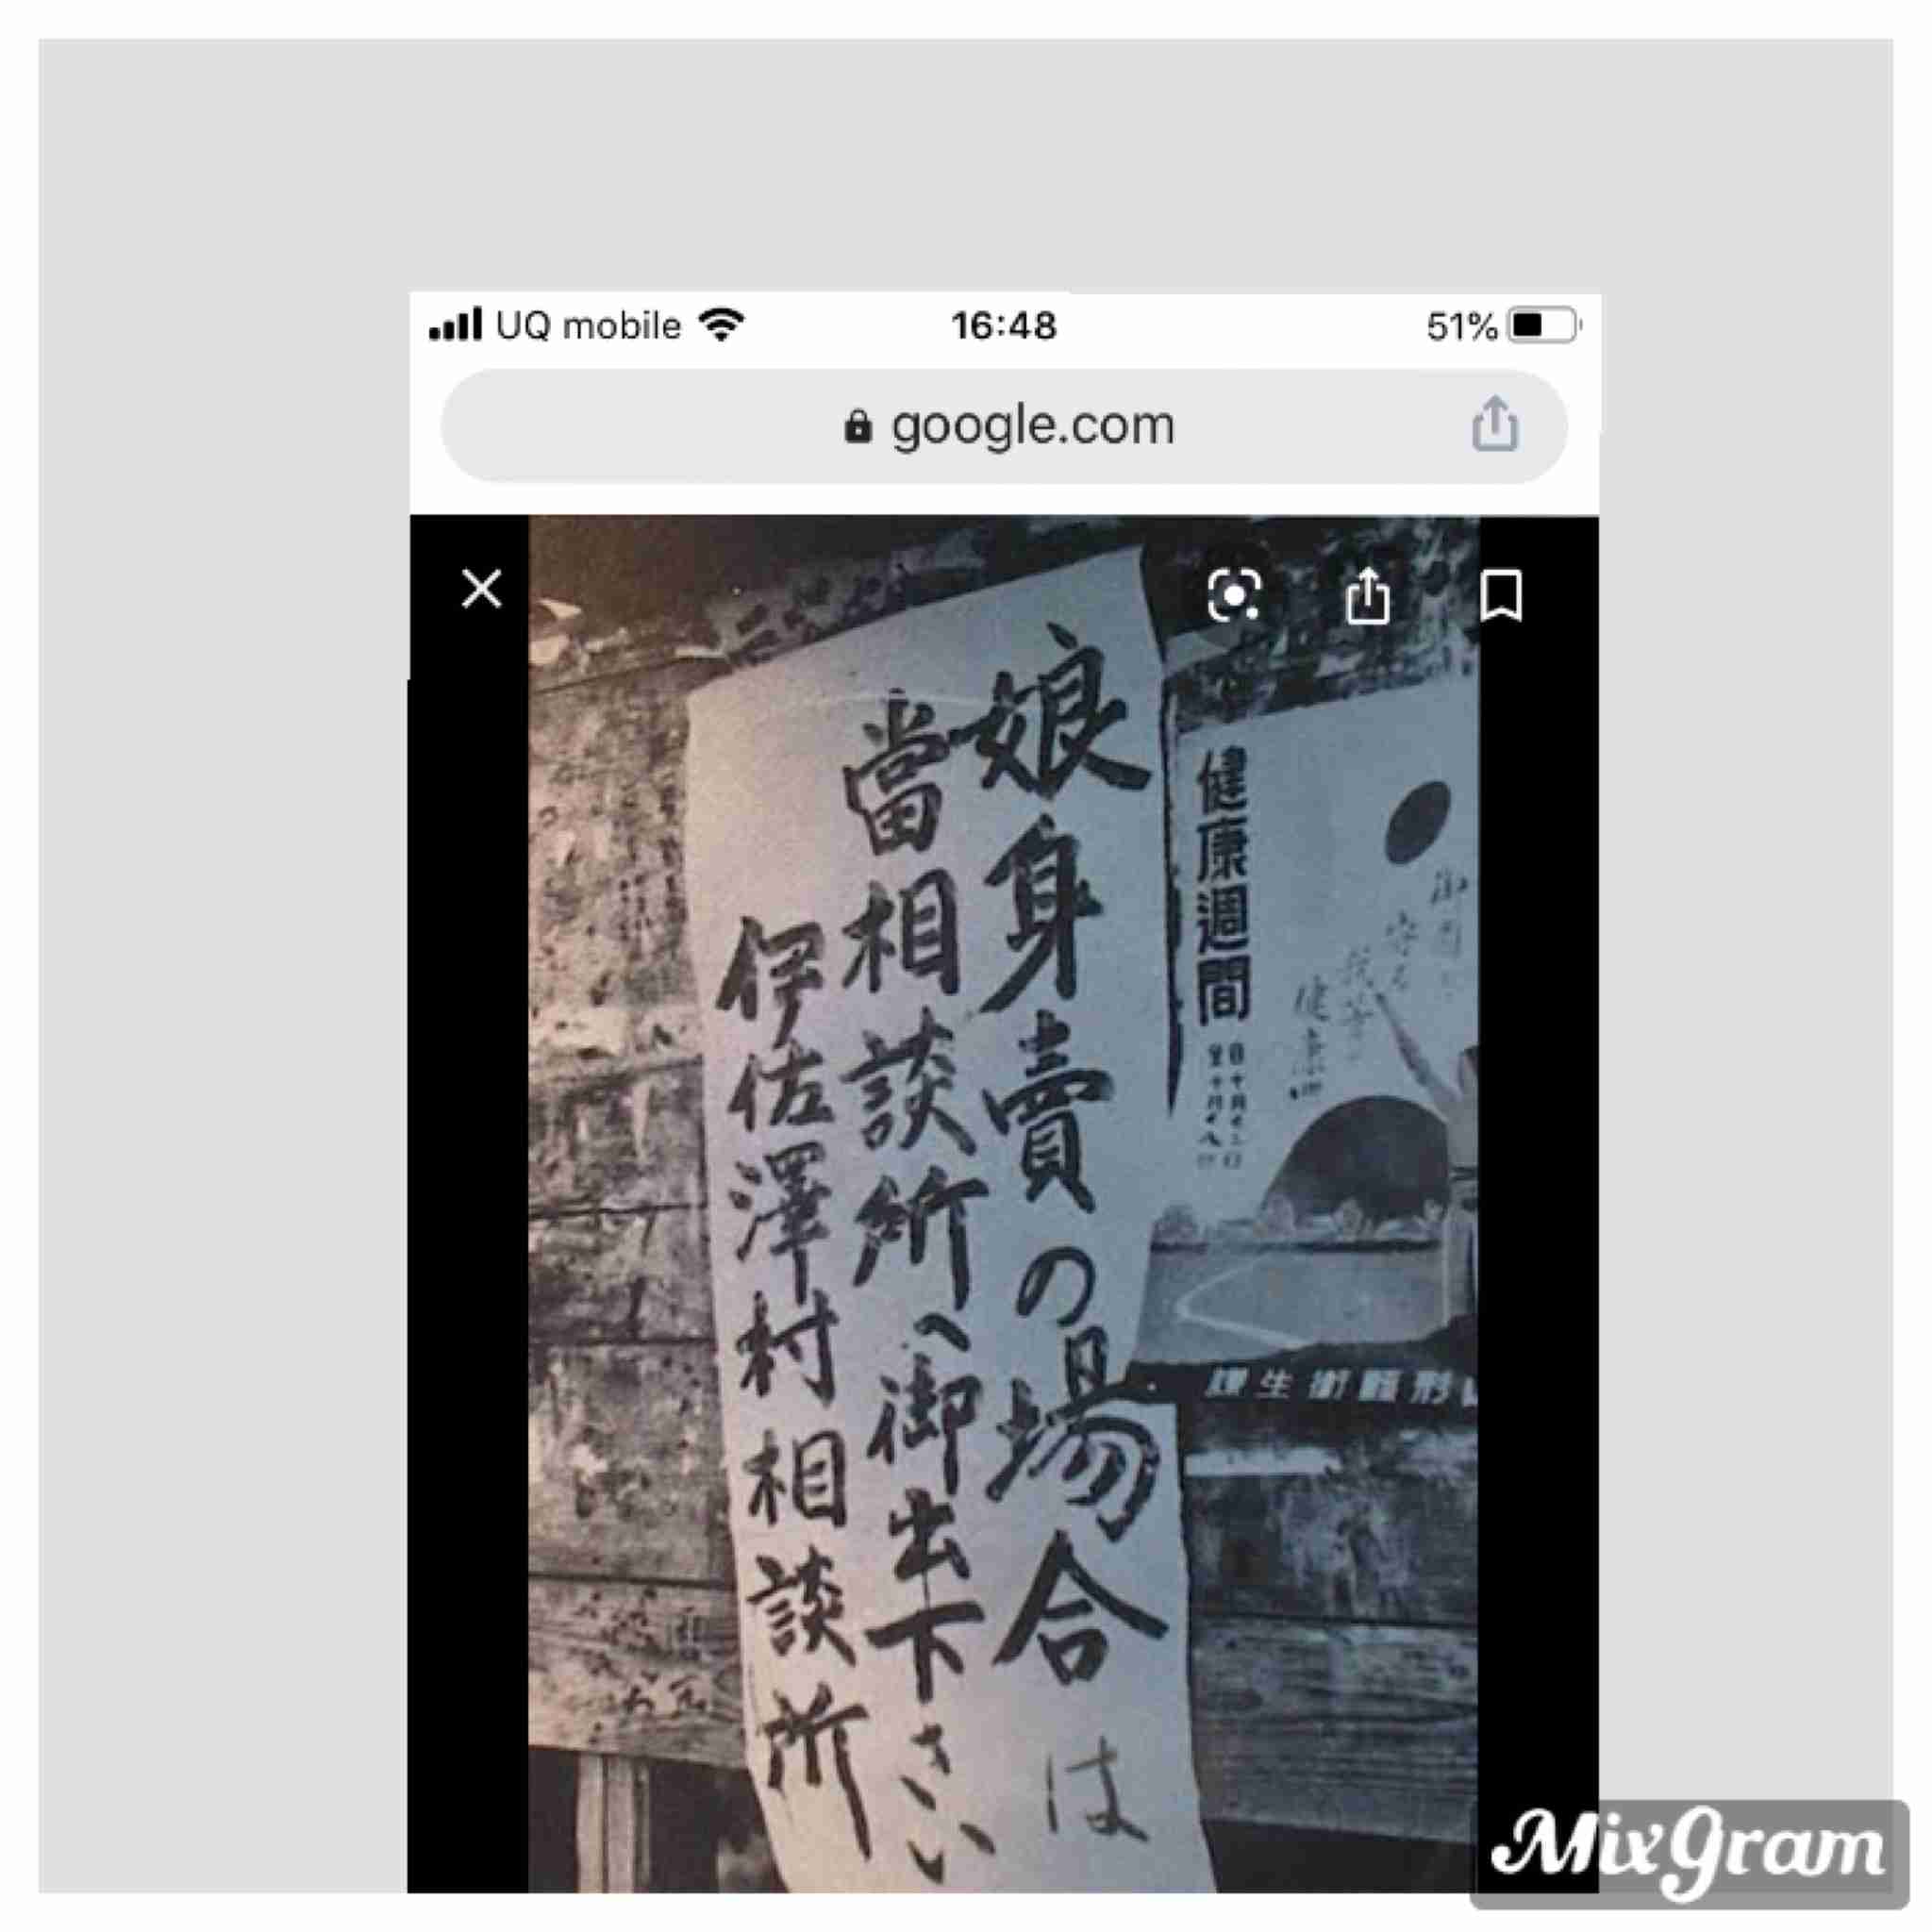 UQ mobile 16:48 51%
google.com
娘身賣の場合は
當相談所へ御出下さい
伊佐澤村相談所
健康週間
健康
課生衛縣形山
MixGram